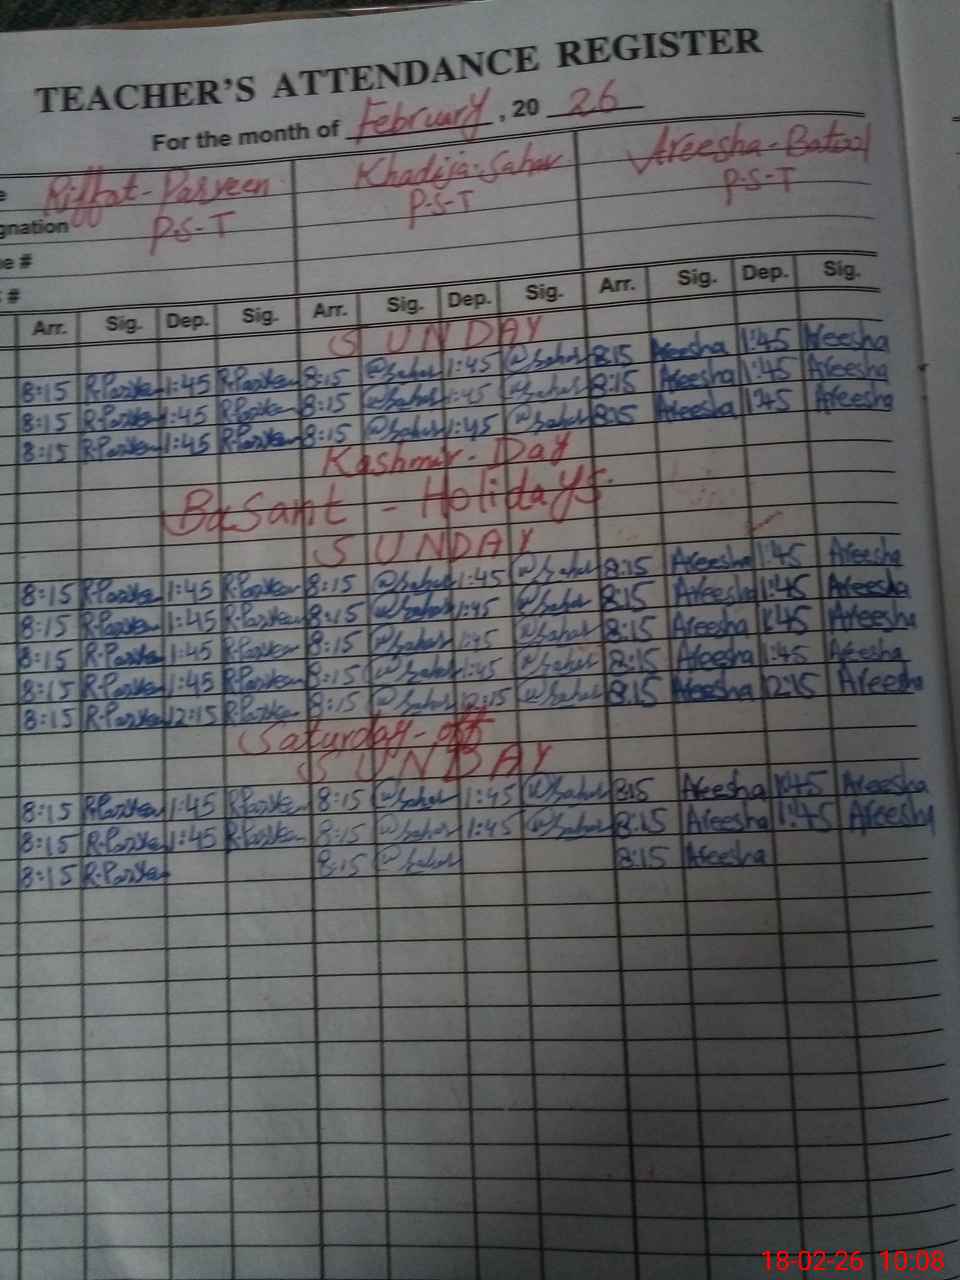 TEACHER'S ATTENDANCE REGISTER
For the month of February, 20 26
e Riffat-Parveen Khadija-Sahar Areesha-Batool
gnation P-S-T P-S-T P-S-T
e #
#
Arr. Sig. Dep. Sig. Arr. Sig. Dep. Sig. Arr. Sig. Dep. Sig.
SUNDAY
8:15 R.Parveen 1:45 R.Parveen 8:15 @Sahar 1:45 @Sahar 8:15 Areesha 1:45 Areesha
8:15 R.Parveen 1:45 R.Parveen 8:15 @Sahar 1:45 @Sahar 8:15 Areesha 1:45 Areesha
8:15 R.Parveen 1:45 R.Parveen 8:15 @Sahar 1:45 @Sahar 8:15 Areesha 1:45 Areesha
Kashmir - Day
Basant - Holidays.
SUNDAY
8:15 R.Parveen 1:45 R.Parveen 8:15 @Sahar 1:45 @Sahar 8:15 Areesha 1:45 Areesha
8:15 R.Parveen 1:45 R.Parveen 8:15 @Sahar 1:45 @Sahar 8:15 Areesha 1:45 Areesha
8:15 R.Parveen 1:45 R.Parveen 8:15 @Sahar 1:45 @Sahar 8:15 Areesha 1:45 Areesha
8:15 R.Parveen 1:45 R.Parveen 8:15 @Sahar 1:45 @Sahar 8:15 Areesha 1:45 Areesha
8:15 R.Parveen 12:15 R.Parveen 8:15 @Sahar 12:15 @Sahar 8:15 Areesha 12:15 Areesha
Saturday-off
SUNDAY
8:15 R.Parveen 1:45 R.Parveen 8:15 @Sahar 1:45 @Sahar 8:15 Areesha 1:45 Areesha
8:15 R.Parveen 1:45 R.Parveen 8:15 @Sahar 1:45 @Sahar 8:15 Areesha 1:45 Areesha
8:15 R.Parveen 8:15 @Sahar 8:15 Areesha
18-02-26 10:08